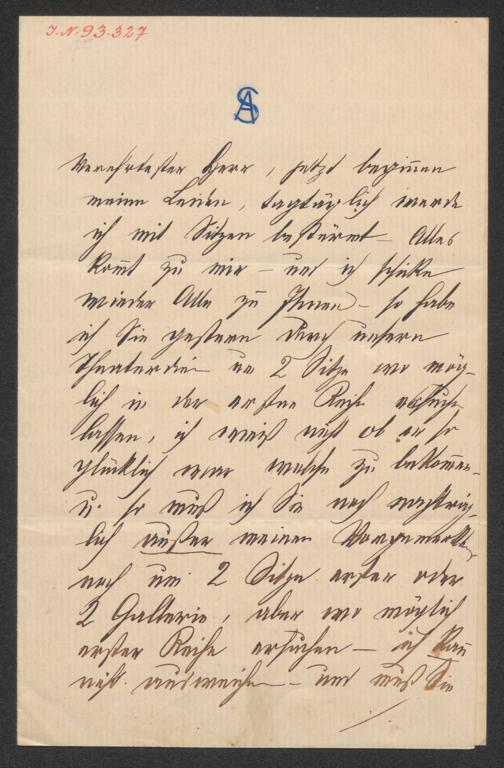 J.N. 93.327
AS
Verehrtester Herr, jetzt beginnen
meine Leiden, tagtäglich werde
ich mit Sitzen bestürmt – Alles
kom̄t zu mir – und ich schicke
wieder Alle zu Ihnen – so habe
ich Sie gestern durch unsern
Theaterdien um 2 Sitze wo mög-
lich in der ersten Reihe ersuchen
lassen, ich weiß nicht ob er so
glücklich war welche zu bekommen –
u. so muß ich Sie noch nachträg-
lich außer meinen Vorgemerkten
noch um 2 Sitze erster oder
2 Gallerie, aber wo möglich
erster Reihe ersuchen – ich kan̄
nicht ausweichen – und muß Sie